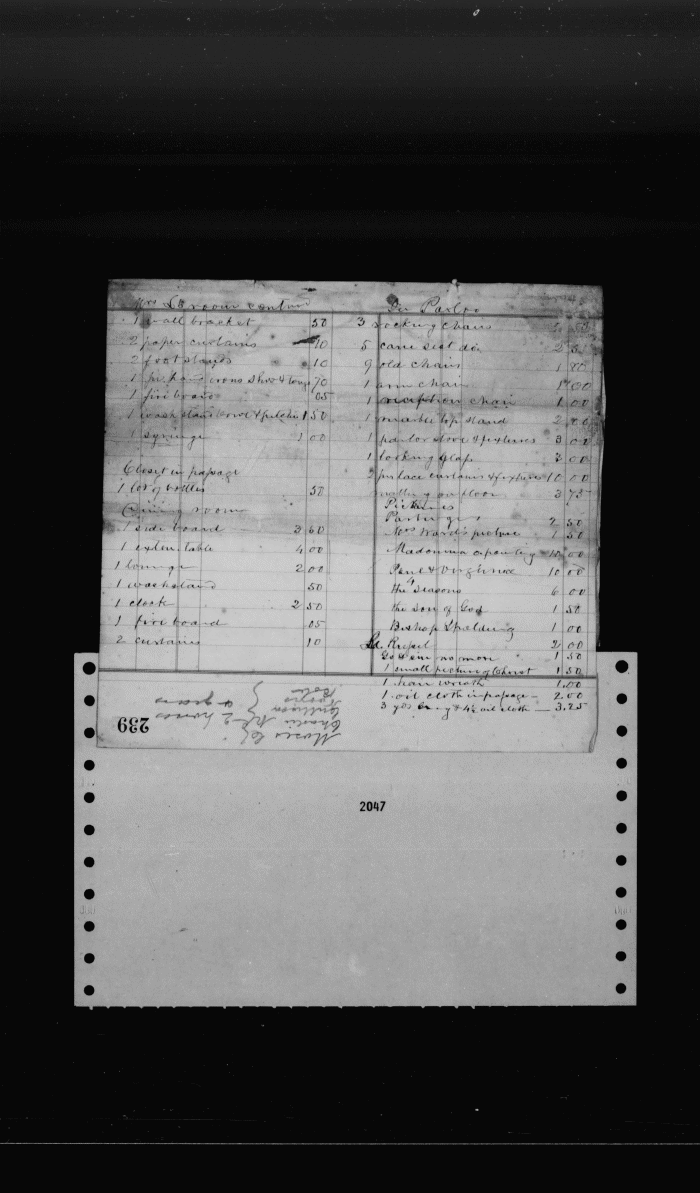 Mrs L's room contin
1 wall bracket 50
2 paper curtains 10
2 foot stages 10
1 pr. hand irons shov & tongs 70
1 fire board 05
1 wash stand bowl & pitcher 1 50
1 syringe 1 00
Closet in passage
1 lot of bottles 50
Dining room
1 side board 3 60
1 exten. table 4 00
1 lounge 2 00
1 washstand 50
1 clock 2 50
1 fire board 05
2 curtains 10
In Parlor
3 rocking chairs
5 cane seat do. 2
9 old chairs 1 80
1 arm chair 1 00
1 reception chair 1 00
1 marble top stand 2
1 parlor stove & fixtures 3 00
1 looking glass 3 00
2 pr lace curtains & fixtures 10 00
matting on floor 3 75
Pictures
2 50
Mrs Ward's picture 50
Madonna 10 00
Paul & Virginia 10 00
the 4 seasons 6 00
the Son of God 1 50
Bishop Spalding 1 00
Ld. Russel 2 00
no more 1 50
1 small picture of Christ 1 50
1 hair wreath 1.00
1 oil cloth in passage — 2.00
3 yds & 4¼ oil cloth — 3.25
Moses
Charlie
2 horses
4 years
239
2047